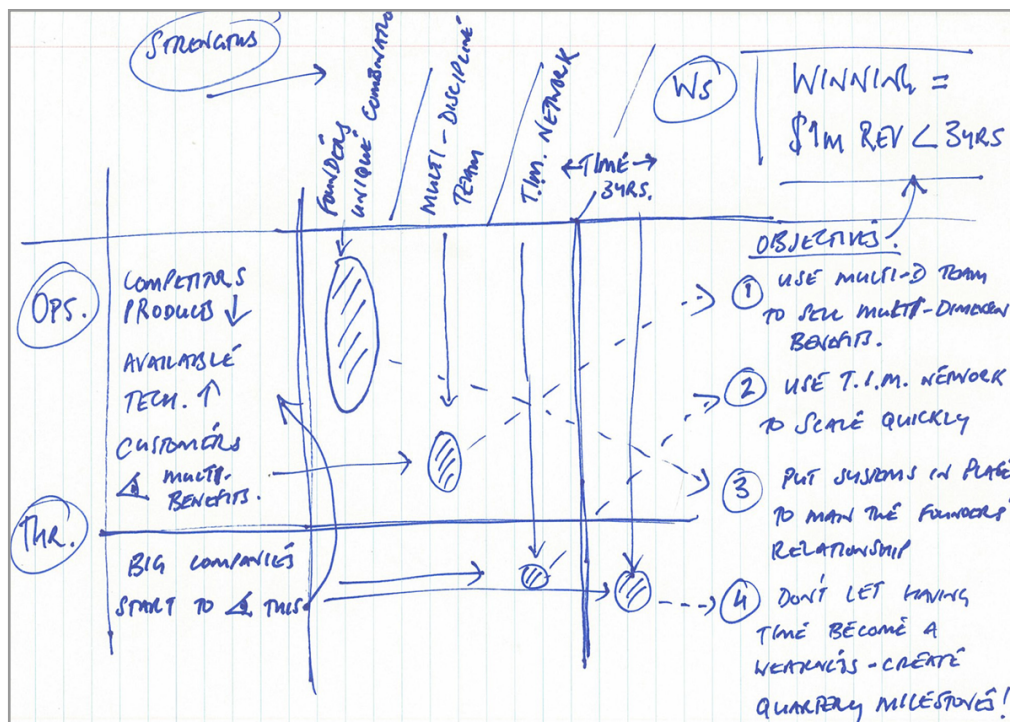 STRENGTHS
FOUNDERS
UNIQUE COMBINATIO
MULTI-DISCIPLINE
TEAM
T.I.M. NETWORK
←TIME→
3YRS.
WS
WINNING =
$1M REV < 3YRS
OBJECTIVES.
OPS.
COMPETITORS
PRODUCTS ↓
AVAILABLE
TECH. ↑
CUSTOMERS
MULTI-
BENEFITS.
THR.
BIG COMPANIES
START TO THIS
1 USE MULTI-D TEAM
TO SELL MULTI-DIMENSION
BENEFITS.
2 USE T.I.M. NETWORK
TO SCALE QUICKLY
3 PUT SYSTEMS IN PLACE
TO MAIN THE FOUNDERS'
RELATIONSHIP
4 DON'T LET HAVING
TIME BECOME A
WEAKNESS - CREATE
QUARTERLY MILESTONES!